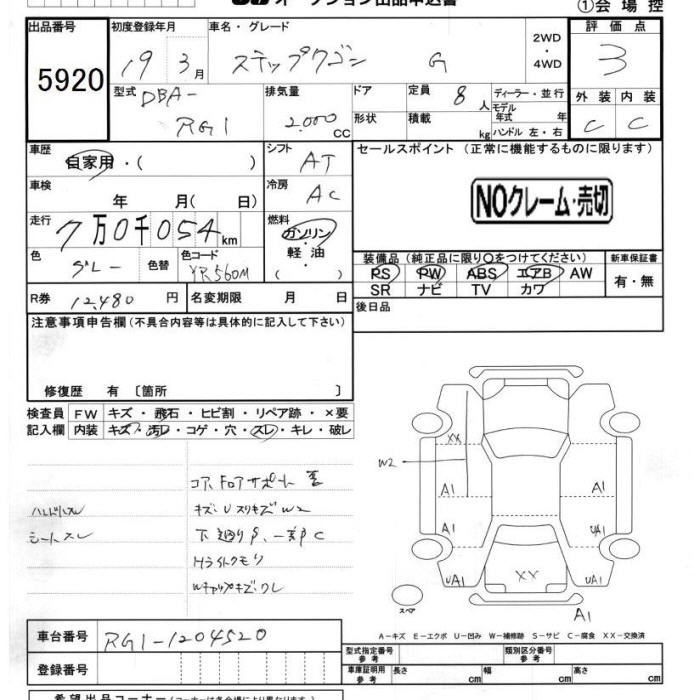 オークション出品申込書
①会場控
出品番号 5920
初度登録年月 19 3月
車名・グレード ステップワゴン G
2WD・4WD
評価点 3
型式 DBA-RG1
排気量 2.000 CC
ドア形状
定員 8人
積載 kg
ディーラー・並行
モデル年式 年
ハンドル 左・右
外装 C
内装 C
車歴 自家用・( )
シフト AT
セールスポイント (正常に機能するものに限ります)
車検 年 月( 日)
冷房 AC
NOクレーム・売切
走行 7万0千054km
燃料 ガソリン・軽油・( )
色 グレー
色替
色コード YR560M
装備品 (純正品に限り〇をつけてください)
新車保証書
PS PW ABS エアB AW
有・無
SR ナビ TV カワ
R券 12,480 円
名変期限 月 日
後日品
注意事項申告欄(不具合内容等は具体的に記入して下さい)
修復歴 有〔箇所 〕
検査員記入欄
FW キズ・飛石・ヒビ割・リペア跡・×要
内装 キズ・汚レ・コゲ・穴・スレ・キレ・破レ
コアスドロアサポート
ハンドルスレ
シートスレ
キズ・Uスリキズ W2
下廻りS、一部C
Hライトクモリ
Wキャップキズ・スレ
XX
W2
A1 A1
A1 UA1
UA1 XX UA1
スペア
A1
A－キズ E－エクボ U－凹み W－補修跡 S－サビ C－腐食 XX－交換済
車台番号 RG1-1204520
登録番号
型式指定番号 参考
類別区分番号 参考
車庫証明用 参考 長さ cm 幅 cm 高さ cm
希望出品コーナー(コーナーは各会場により異なります)